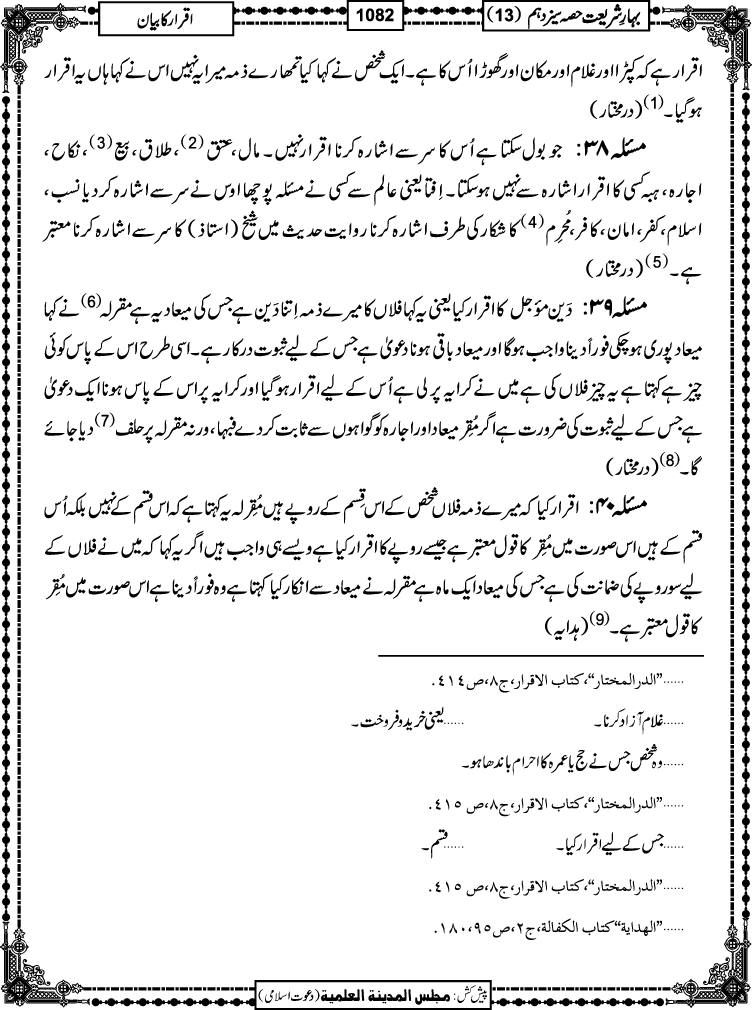 بہارِشریعت حصہ سیزدہم (13)
1082
اقرار کا بیان
اقرار ہے کہ کپڑا اور غلام اور مکان اور گھوڑا اُس کا ہے۔ ایک شخص نے کہا کیا تمھارے ذمہ میرا یہ نہیں اس نے کہا ہاں یہ اقرار
ہوگیا۔(1) (درمختار)
مسئلہ ۳۸: جو بول سکتا ہے اُس کا سر سے اشارہ کرنا اقرار نہیں۔ مال، عتق(2)، طلاق، بیع(3)، نکاح،
اجارہ، ہبہ کسی کا اقرار اشارہ سے نہیں ہوسکتا۔ اِفتا یعنی عالم سے کسی نے مسئلہ پوچھا اوس نے سر سے اشارہ کردیا نسب،
اسلام، کفر، امان، کافر، مُحرِم(4) کا شکار کی طرف اشارہ کرنا روایت حدیث میں شیخ (استاذ) کا سر سے اشارہ کرنا معتبر
ہے۔(5) (درمختار)
مسئلہ ۳۹: دَین مؤجل کا اقرار کیا یعنی یہ کہا فلاں کا میرے ذمہ اِتنا دَین ہے جس کی میعاد یہ ہے مقرلہ(6) نے کہا
میعاد پوری ہوچکی فوراً دینا واجب ہوگا اور میعاد باقی ہونا دعویٰ ہے جس کے لیے ثبوت درکار ہے۔ اسی طرح اس کے پاس کوئی
چیز ہے کہتا ہے یہ چیز فلاں کی ہے میں نے کرایہ پر لی ہے اُس کے لیے اقرار ہوگیا اور کرایہ پر اس کے پاس ہونا ایک دعویٰ
ہے جس کے لیے ثبوت کی ضرورت ہے اگر مُقِر میعاد اور اجارہ کو گواہوں سے ثابت کردے فبہا، ورنہ مقرلہ پر حلف(7) دیا جائے
گا۔(8) (درمختار)
مسئلہ ۴۰: اقرار کیا کہ میرے ذمہ فلاں شخص کے اس قِسم کے روپے ہیں مُقِرلہ یہ کہتا ہے کہ اس قسم کے نہیں بلکہ اُس
قسم کے ہیں اس صورت میں مُقِر کا قول معتبر ہے جیسے روپے کا اقرار کیا ہے ویسے ہی واجب ہیں اگر یہ کہا کہ میں نے فلاں کے
لیے سو روپے کی ضمانت کی ہے جس کی میعاد ایک ماہ ہے مقرلہ نے میعاد سے انکار کیا کہتا ہے وہ فوراً دینا ہے اس صورت میں مُقِر
کا قول معتبر ہے۔(9) (ہدایہ)
......”الدرالمختار“، کتاب الاقرار، ج٨، ص٤١٤.
......غلام آزاد کرنا۔ ......یعنی خرید و فروخت۔
......وہ شخص جس نے حج یا عمرہ کا احرام باندھا ہو۔
......”الدرالمختار“، کتاب الاقرار، ج٨، ص٤١٥.
......جس کے لیے اقرار کیا۔ ......قسم۔
......”الدرالمختار“، کتاب الاقرار، ج٨، ص٤١٥.
......”الهداية“ کتاب الکفالة، ج٢، ص٩٥، ١٨٠.
پیش کش: مجلس المدینة العلمیة (دعوت اسلامی)